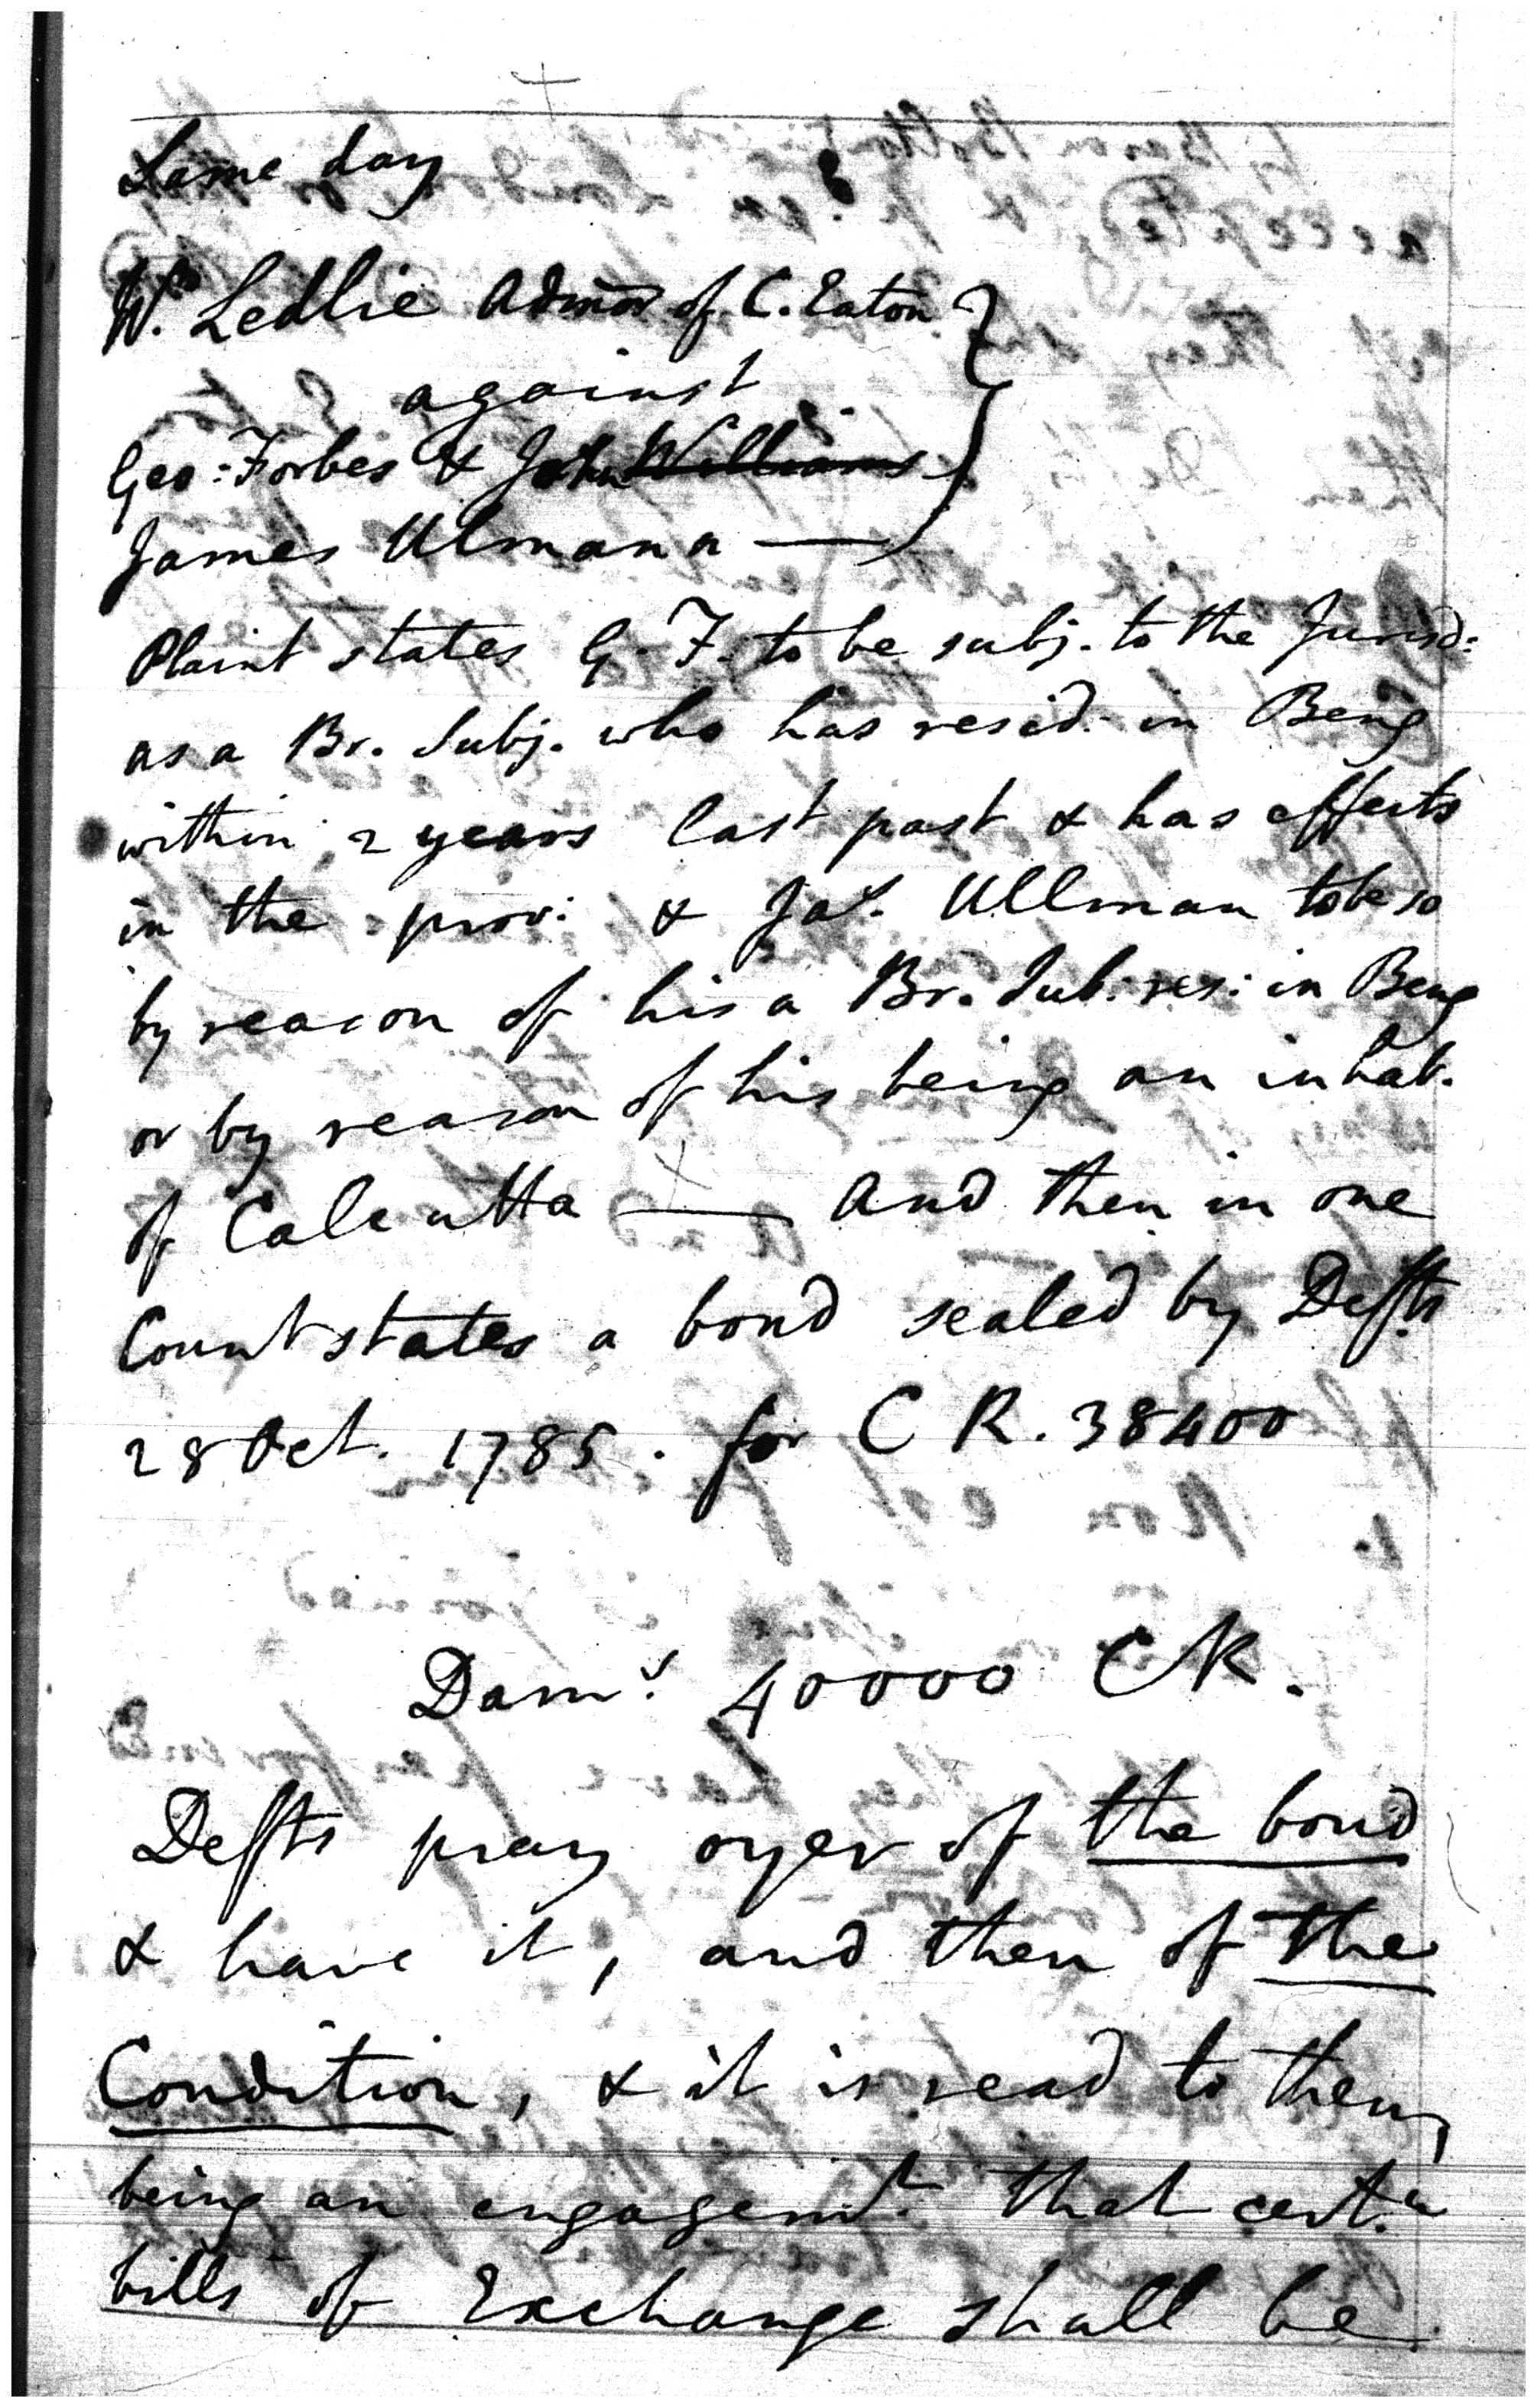 Same day
Wm. Ledlie Admor of C. Eaton
against
Geo: Forbes & John Williams
James Ulmann —
Plaint states G. F. to be subj. to the Jurisd:
as a Br. Subj. who has resid. in Beng
within 2 years last past & has effects
in the prov: & Jas. Ullman to be so
by reason of his a Br. Sub: res: in Beng
or by reason of his being an inhab.
of Calcutta — And then in one
Count states a bond sealed by Defts
28 Oct. 1785. for C R. 38400
Dams. 40000 CR.
Defts pray oyer of the bond
& have it, and then of the
Condition, & it is read to them,
being an engagemt. that certn
bills of Exchange shall be